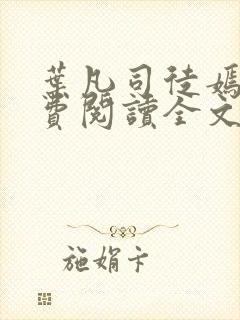 葉凡司徒嫣
費閱讀全文
施娟卡